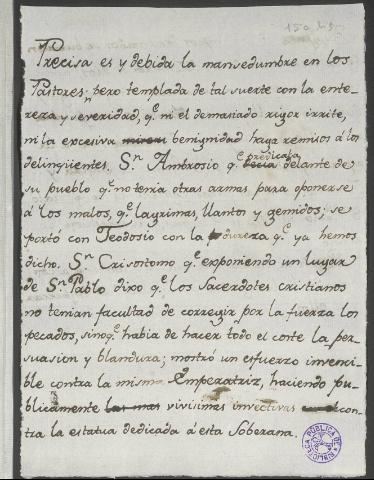 Precisa es y debida la mansedumbre en los
Pastores; pero templada de tal suerte con la ente-
reza y severidad, q.e ni el demasiado rigor irrite,
ni la excesiva benignidad haga remisos á los
delinqüentes. S.n Ambrosio q.e predicaba delante de
su pueblo q.e no tenia otras armas para oponerse
á los malos, q.e lagrimas, llantos y gemidos; se
portó con Teodosio con la dureza q.e ya hemos
dicho. S.n Crisostomo q.e exponiendo un lugar
de S.n Pablo dixo q.e los Sacerdotes cristianos
no tenian facultad de corregir por la fuerza los
pecados, sino q.e habia de hacer todo el corte la per-
suasion y blandura; mostró un esfuerzo invenci-
ble contra la misma Emperatriz, haciendo pu-
blicamente las mas vivisimas invectivas con-
tra la estatua dedicada á esta Soberana.